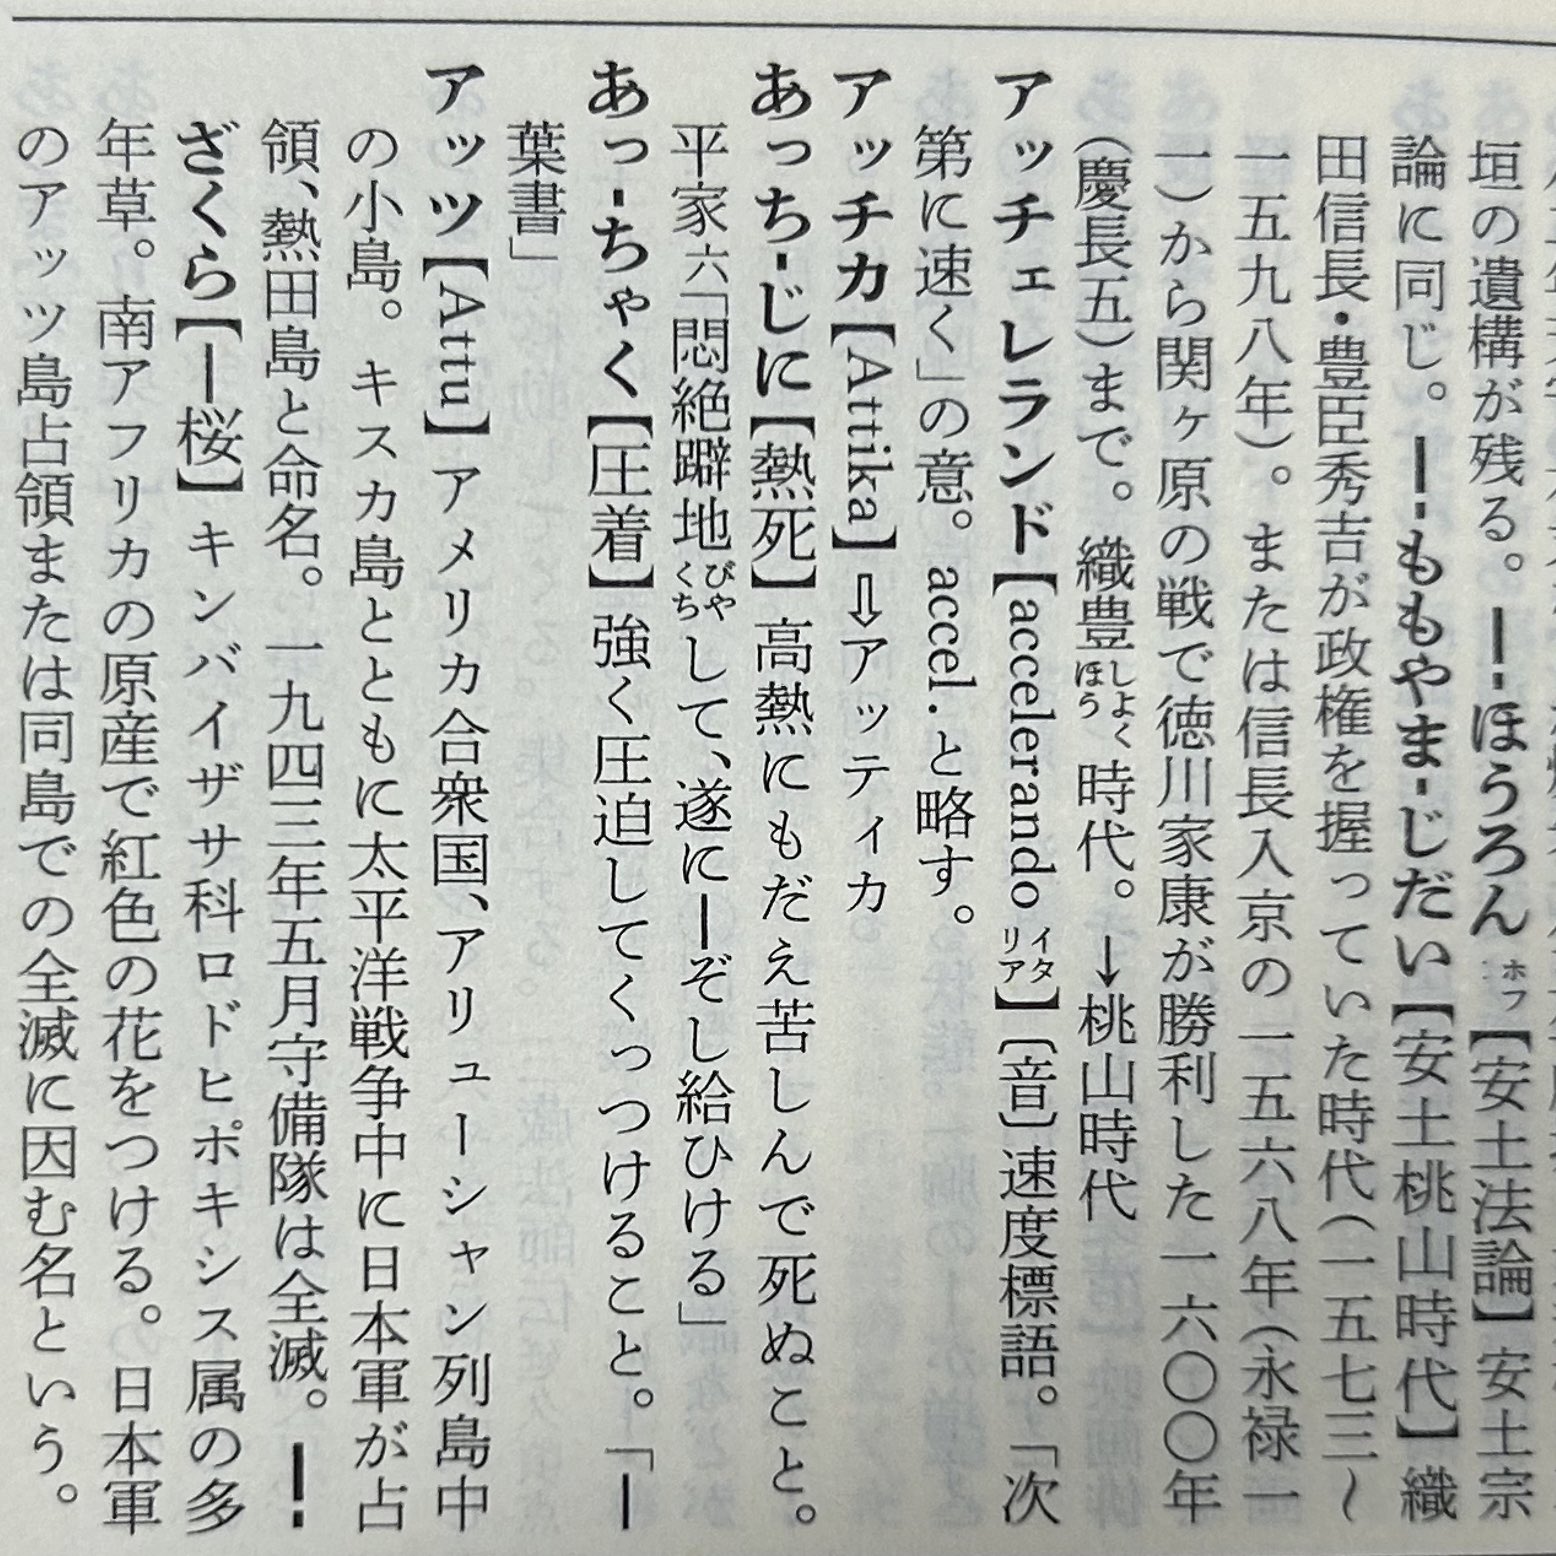 垣の遺構が残る。━-ほうろん‥ホフ【安土法論】安土宗
論に同じ。━-ももやま-じだい【安土桃山時代】織
田信長・豊臣秀吉が政権を握っていた時代(一五七三〜
一五九八年)。または信長入京の一五六八年(永禄一
一)から関ヶ原の戦で徳川家康が勝利した一六〇〇年
(慶長五)まで。織豊しよくほう時代。→桃山時代
アッチェレランド【accelerando イタリア】〔音〕速度標語。「次
第に速く」の意。accel.と略す。
アッチカ【Attika】⇨アッティカ
あっち-じに【熱死】高熱にもだえ苦しんで死ぬこと。
平家六「悶絶躃地びやくちして、遂に━ぞし給ひける」
あっ-ちゃく【圧着】強く圧迫してくっつけること。「━
葉書」
アッツ【Attu】アメリカ合衆国、アリューシャン列島中
の小島。キスカ島とともに太平洋戦争中に日本軍が占
領、熱田島と命名。一九四三年五月守備隊は全滅。━-
ざくら【━桜】キンバイザサ科ロドヒポキシス属の多
年草。南アフリカの原産で紅色の花をつける。日本軍
のアッツ島占領または同島での全滅に因む名という。